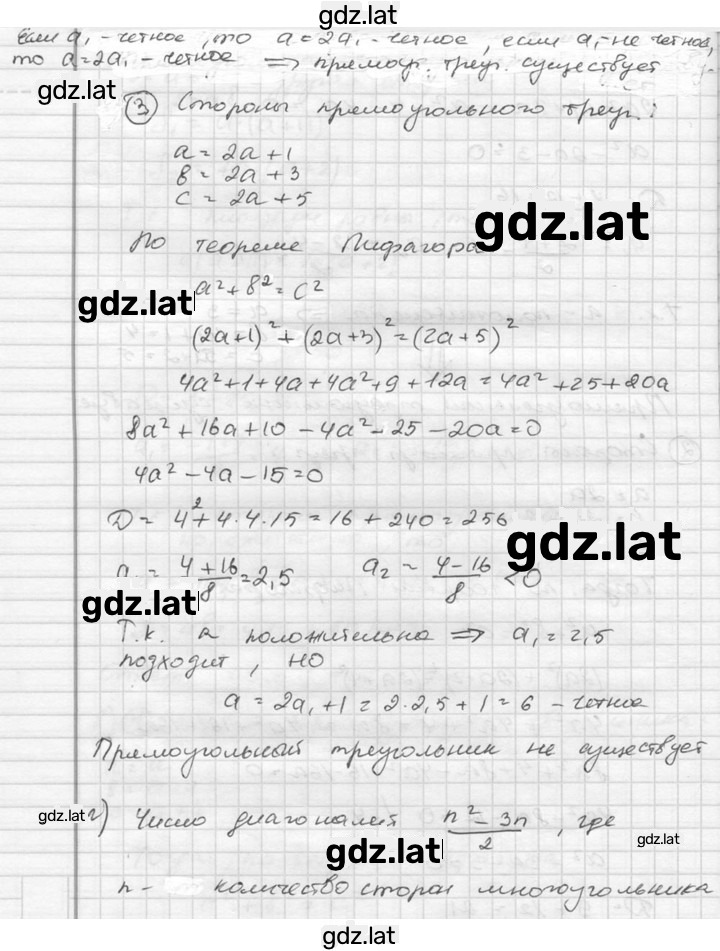 gdz.lat
если a₁ - четное, то a = 2a₁ - четное, если a₁ - не четное,
то a = 2a₁ - четное ⇒ прямоуг. треуг. существует
③ Стороны прямоугольного треуг.:
a = 2a + 1
в = 2a + 3
c = 2a + 5
gdz.lat
По теореме Пифагора
gdz.lat
a² + в² = c²
(2a+1)² + (2a+3)² = (2a+5)²
4a² + 1 + 4a + 4a² + 9 + 12a = 4a² + 25 + 20a
8a² + 16a + 10 - 4a² - 25 - 20a = 0
4a² - 4a - 15 = 0
D = 4² + 4·4·15 = 16 + 240 = 256
gdz.lat
a₁ = (4+16)/8 = 2,5 a₂ = (4-16)/8 < 0
gdz.lat
Т.к. a положительна ⇒ a₁ = 2,5
подходит, но
a = 2a₁ + 1 = 2·2,5 + 1 = 6 - четное
Прямоугольный треугольник не существует
gdz.lat
г) Число диагоналей (n² - 3n)/2, где
gdz.lat
gdz.lat
n - количество сторон многоугольника
gdz.lat